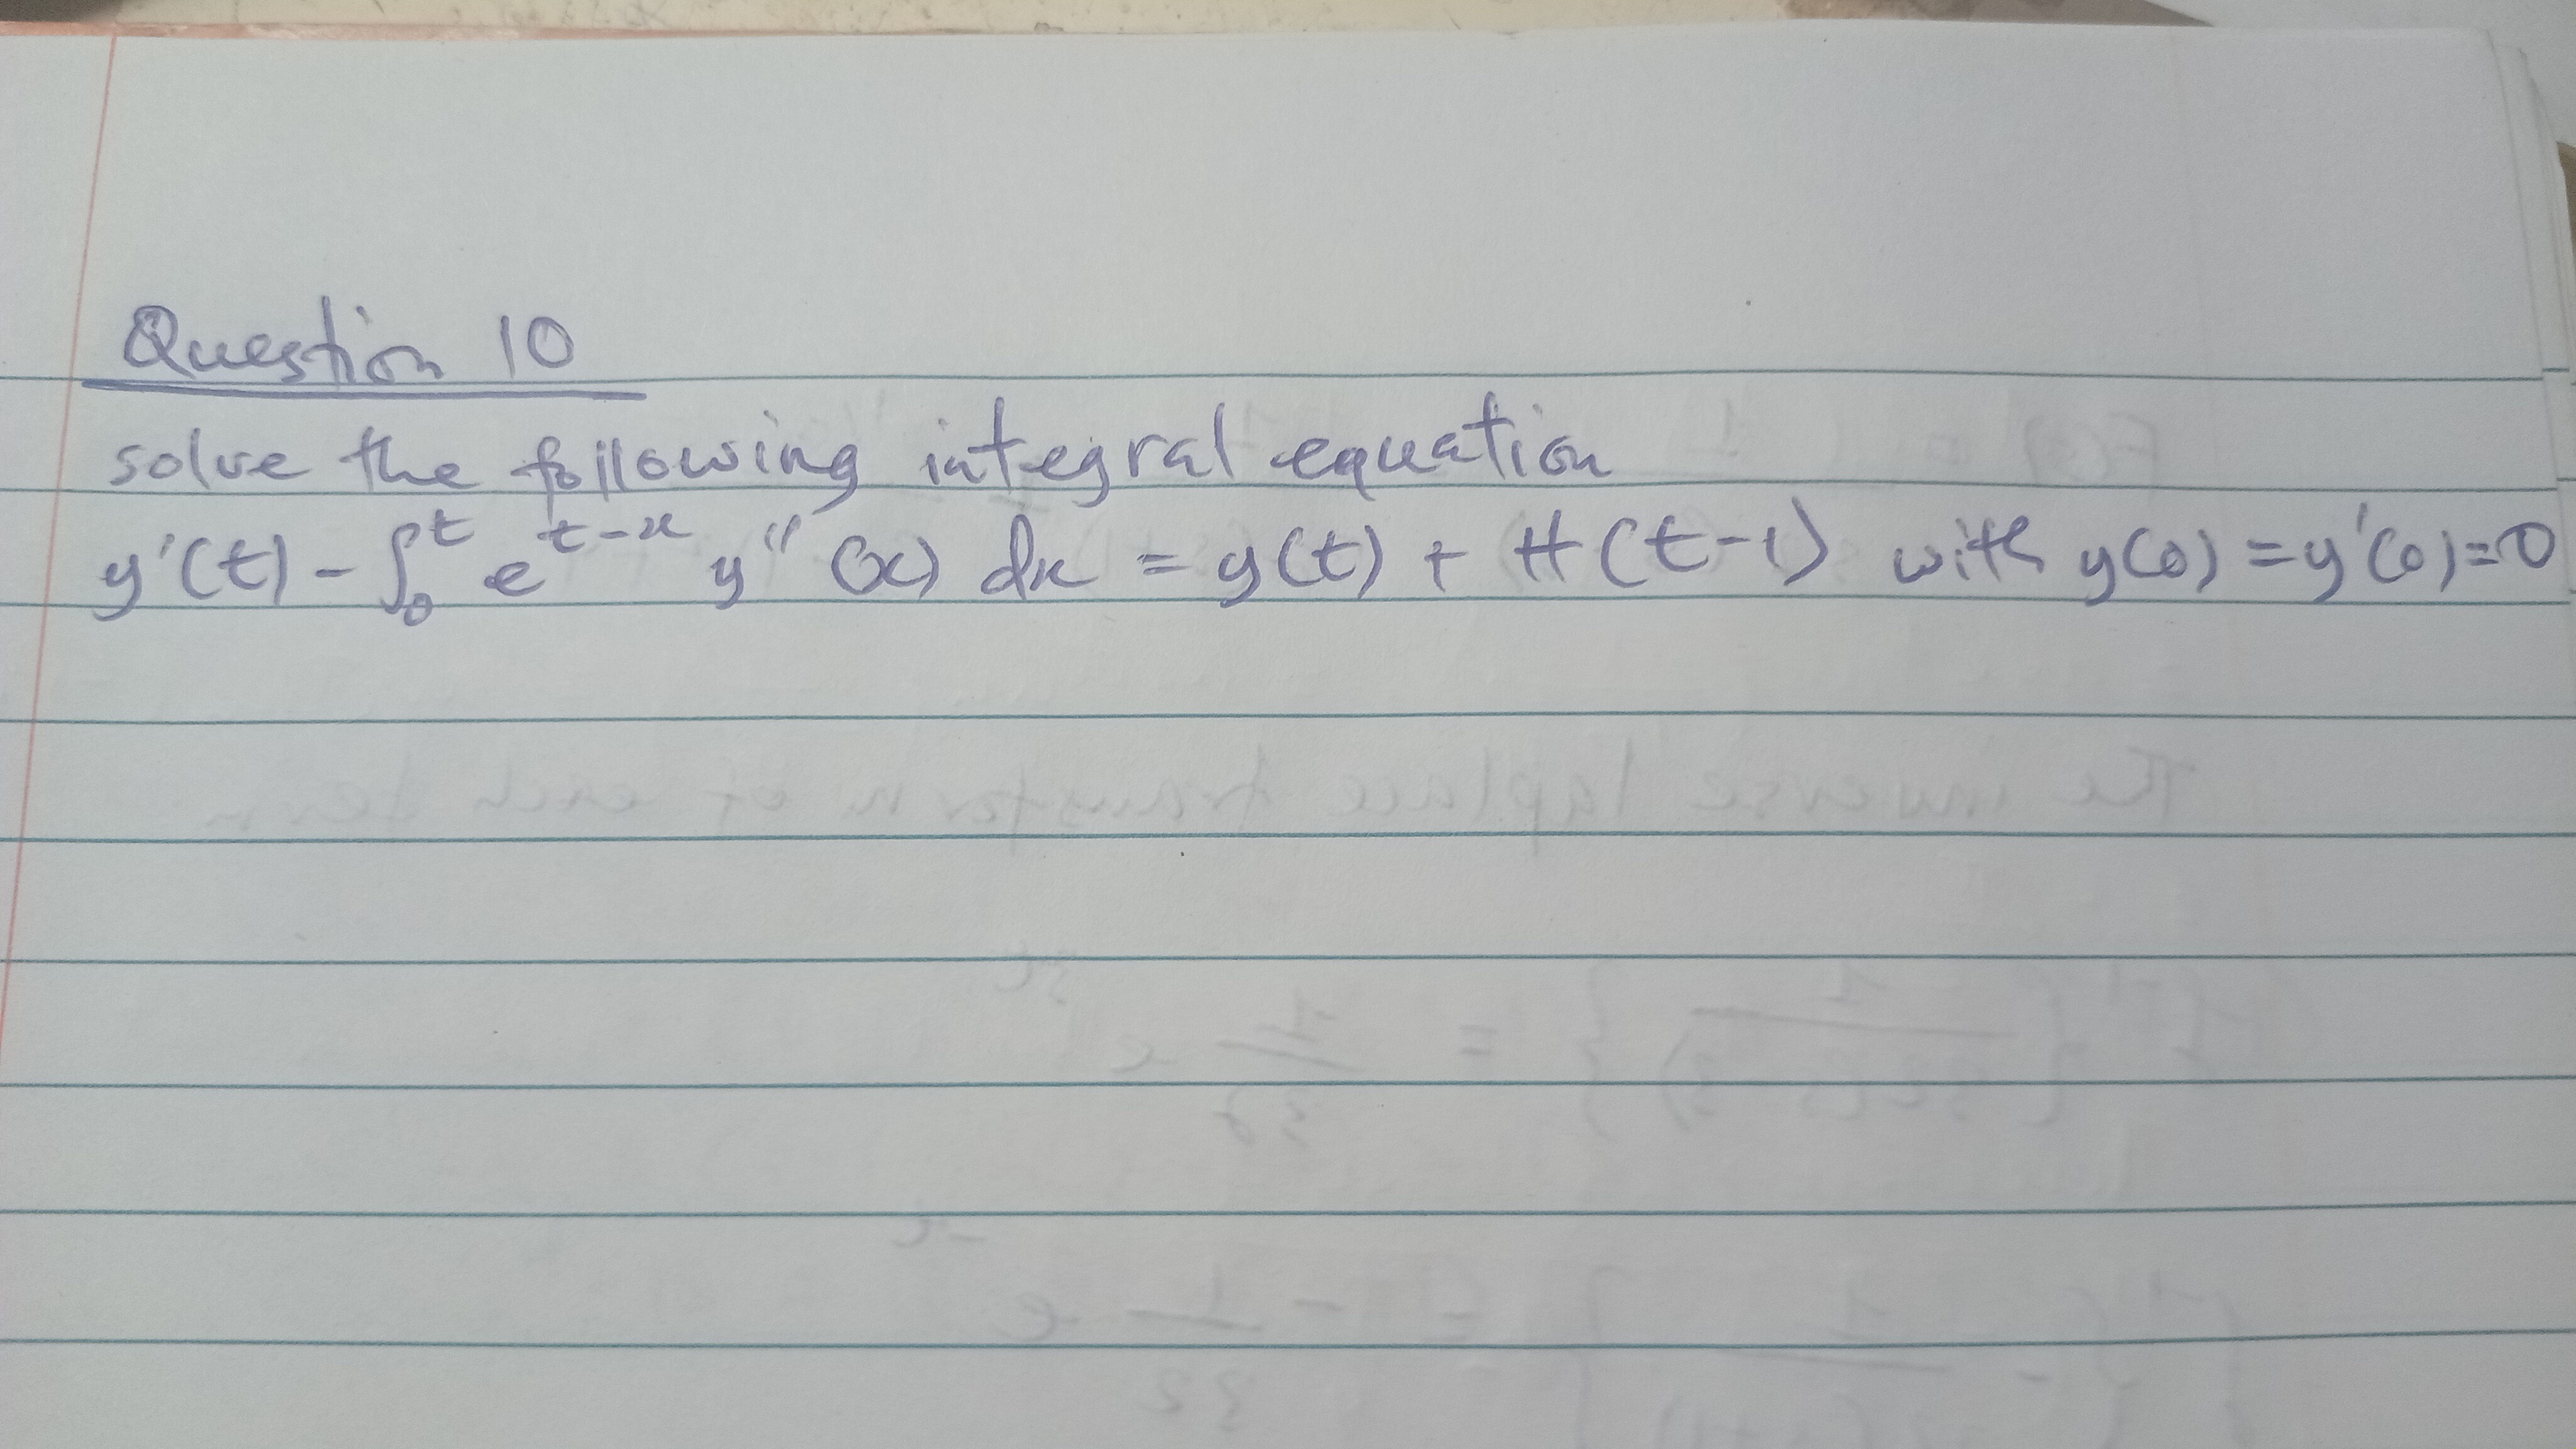 Question 10
solve the following integral equation
y'(t) - ∫₀ᵗ e^(t-x) y''(x) dx = y(t) + H(t-1) with y(0) = y'(0) = 0